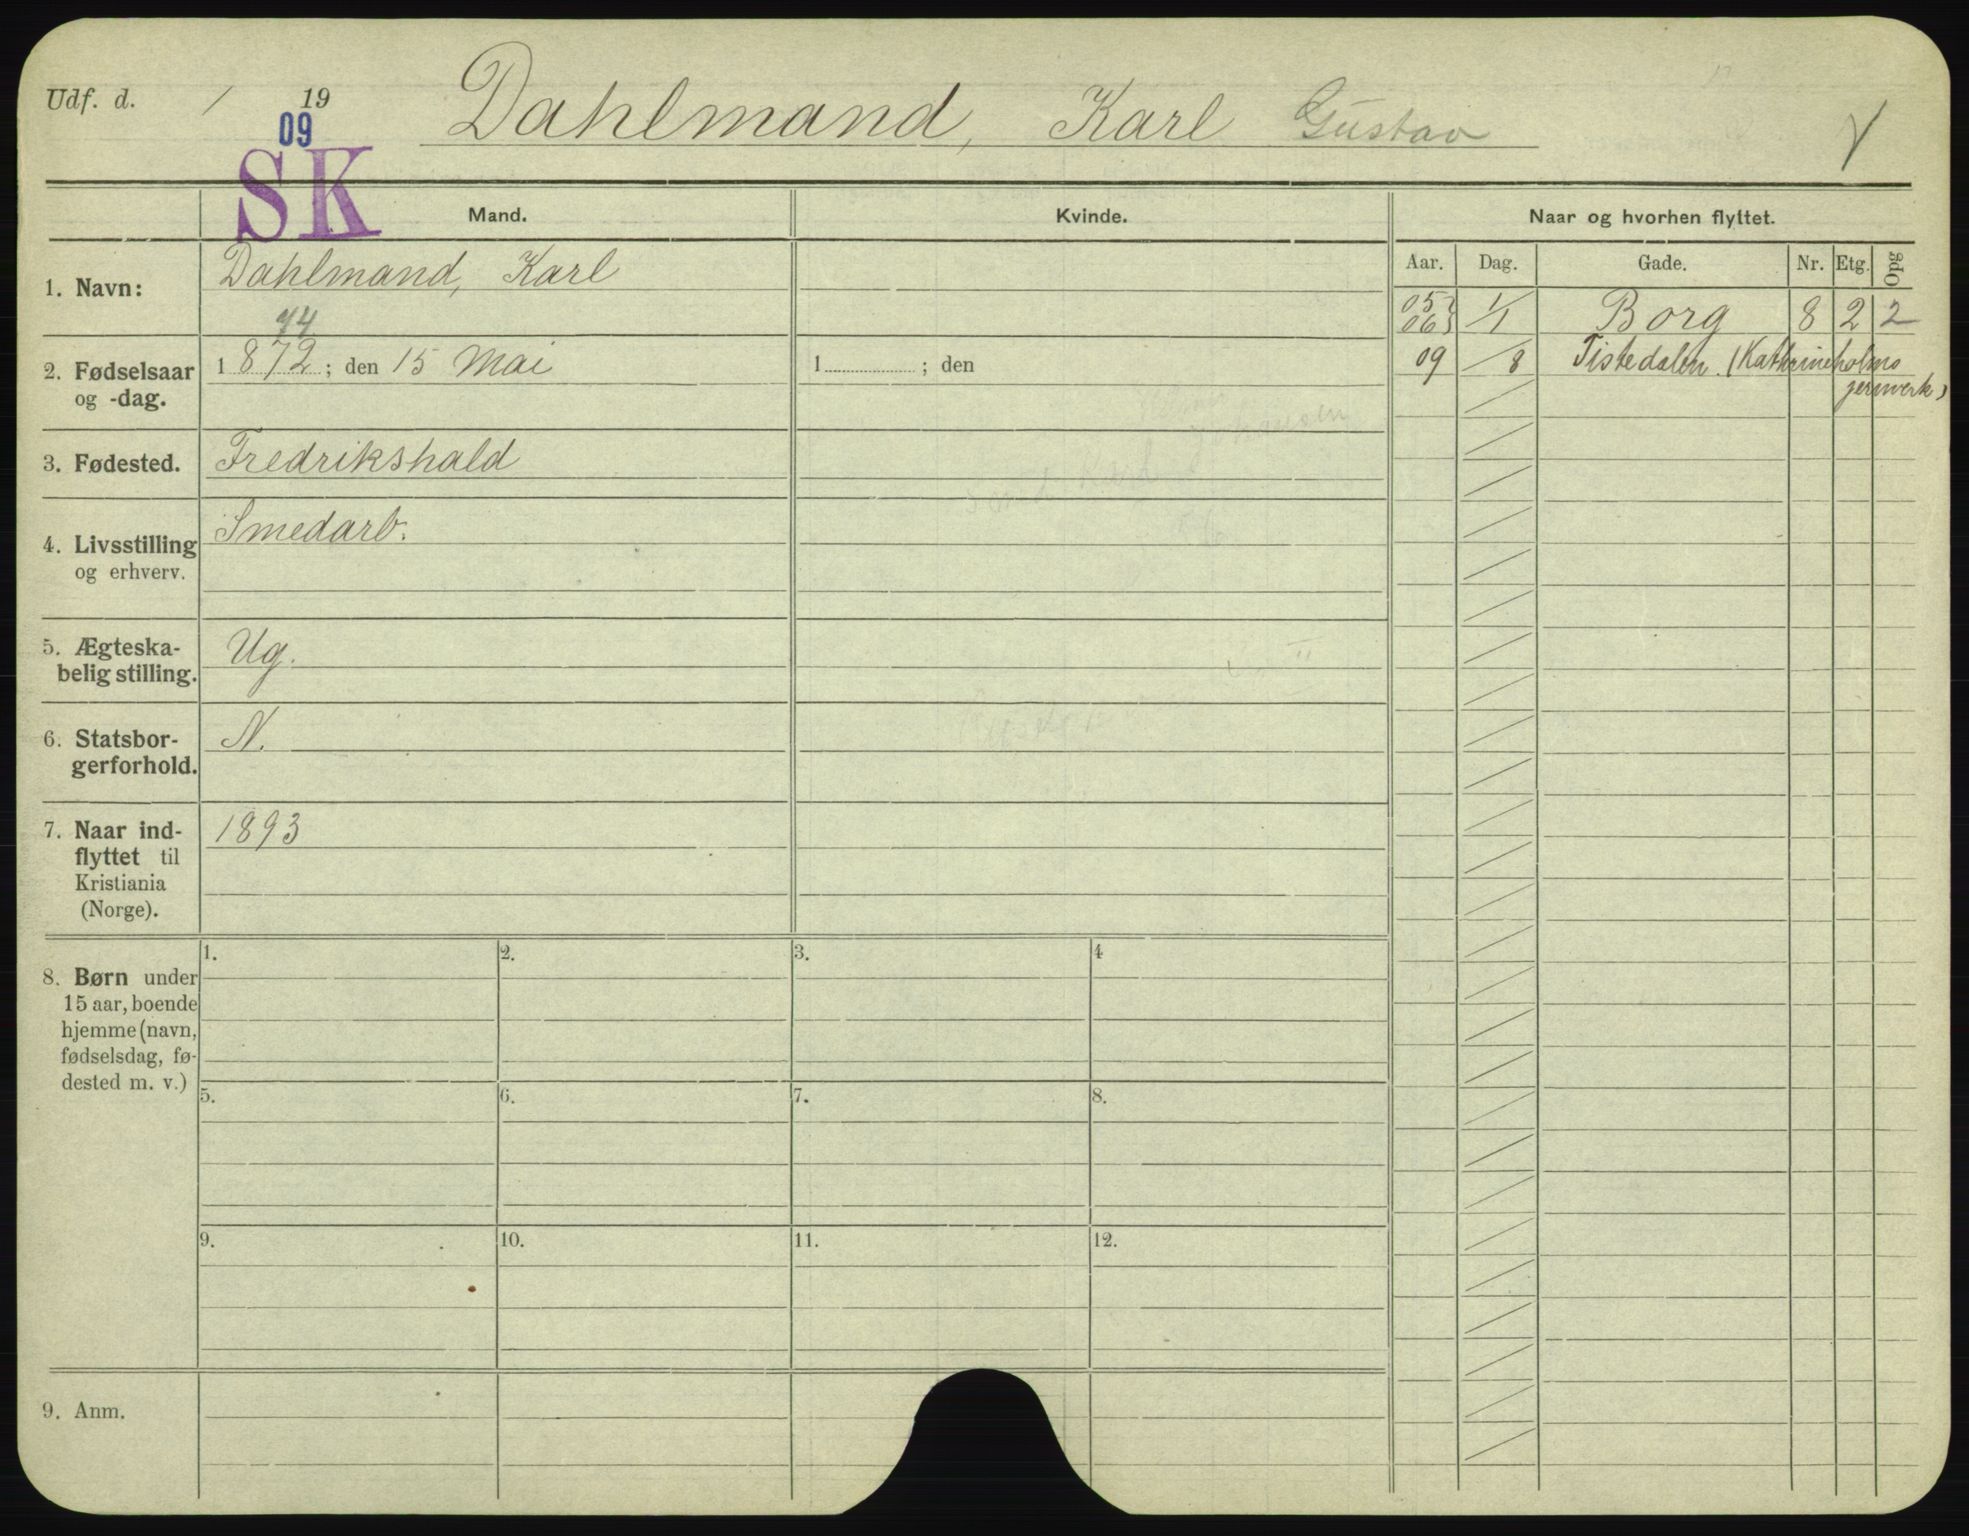 Udf. d. / 19 Dahlmand, Karl Gustav
09
SK
Mand. Kvinde. Naar og hvorhen flyttet.
Aar. Dag. Gade. Nr. Etg. Opg
1. Navn: Dahlmand, Karl
05 06 1/1 Borg 8 2 2
74
2. Fødselsaar og -dag. 1872; den 15 Mai 1 ; den
09 / 8 Tistedalen. (Kathrineholms
jernverk)
3. Fødested. Fredrikshald
4. Livsstilling og erhverv. Smedarb.
5. Ægteska-
belig stilling. Ug.
6. Statsbor-
gerforhold. N.
7. Naar ind-
flyttet til
Kristiania
(Norge). 1893
8. Børn under
15 aar, boende
hjemme (navn,
fødselsdag, fø-
dested m. v.)
1. 2. 3. 4
5. 6. 7. 8.
9. 10. 11. 12.
9. Anm.